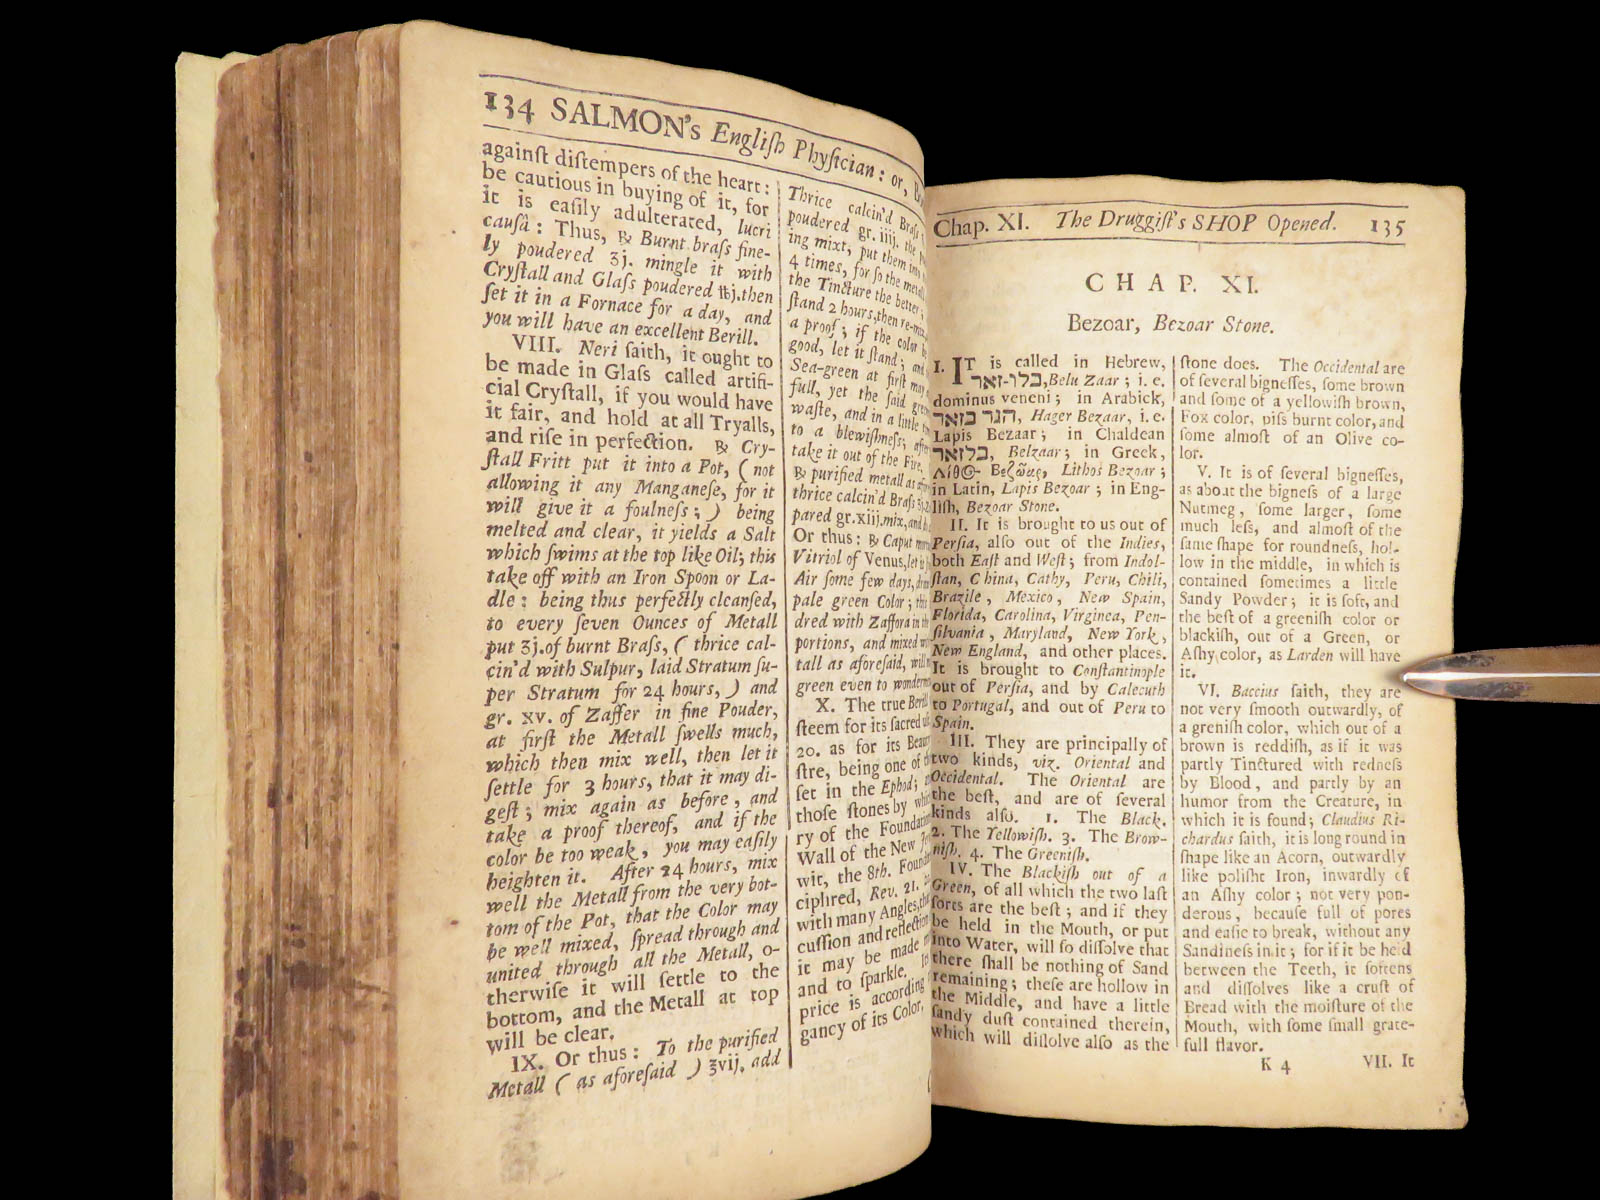 134 SALMON's Engliſh Phyſician: or,
againſt diſtempers of the heart:
be cautious in buying of it, for
it is eaſily adulterated, lucri
cauſâ: Thus, ℞ Burnt braſs fine-
ly poudered ʒj. mingle it with
Cryſtall and Glaſs poudered ℔j. then
ſet it in a Fornace for a day, and
you will have an excellent Berill.
VIII. Neri ſaith, it ought to
be made in Glaſs called artifi-
cial Cryſtall, if you would have
it fair, and hold at all Tryalls,
and riſe in perfection. ℞ Cry-
ſtall Fritt put it into a Pot, (not
allowing it any Manganeſe, for it
will give it a foulneſs;) being
melted and clear, it yields a Salt
which ſwims at the top like Oil; this
take off with an Iron Spoon or La-
dle: being thus perfectly cleanſed,
to every ſeven Ounces of Metall
put ʒj. of burnt Braſs, (thrice cal-
cin'd with Sulpur, laid Stratum ſu-
per Stratum for 24 hours,) and
gr. xv. of Zaffer in fine Pouder,
at firſt the Metall ſwells much,
which then mix well, then let it
ſettle for 3 hours, that it may di-
geſt; mix again as before, and
take a proof thereof, and if the
color be too weak, you may eaſily
heighten it. After 24 hours, mix
well the Metall from the very bot-
tom of the Pot, that the Color may
be well mixed, ſpread through and
united through all the Metall, o-
therwiſe it will ſettle to the
bottom, and the Metall at top
will be clear.
IX. Or thus: To the purified
Metall (as aforeſaid) ℥vij. add
Thrice calcin'd Braſs
poudered gr. iiij. the
ing mixt, put them
4 times, for ſo the
the Tincture the better;
ſtand 2 hours, then
a proof; if the color
good, let it ſtand;
Sea-green at firſt may
full, yet the ſaid
waſte, and in a little
to a blewiſhneſs;
take it out of the Fire.
℞ purified metall as
thrice calcin'd Braſs
pared gr. xiij. mix, and
Or thus: ℞ Caput
Vitriol of Venus, let
Air ſome few days,
pale green Color;
dred with Zaffora in
portions, and mixed
tall as aforeſaid, will
green even to
X. The true
ſteem for its ſacred
20. as for its
ſtre, being one of
ſet in the Ephod;
thoſe ſtones by
ry of the
Wall of the New
wit, the 8th.
ciphred, Rev. 21.
with many Angles,
cuſſion and
it may be made
and to ſparkle.
price is according
gancy of its Color,
Chap. XI. The Druggiſt's SHOP Opened. 135
CHAP. XI.
Bezoar, Bezoar Stone.
I. IT is called in Hebrew,
בלו-זאר, Belu Zaar; i. e.
dominus veneni; in Arabick,
הגר בזאר, Hager Bezaar, i. e.
Lapis Bezaar; in Chaldean
בלזאר, Belzaar; in Greek,
Lithos Bezoar;
in Latin, Lapis Bezoar; in Eng-
liſh, Bezoar Stone.
II. It is brought to us out of
Perſia, alſo out of the Indies,
both Eaſt and Weſt; from Indol-
ſtan, China, Cathy, Peru, Chili,
Brazile, Mexico, New Spain,
Florida, Carolina, Virginea, Pen-
ſilvania, Maryland, New York,
New England, and other places.
It is brought to Conſtantinople
out of Perſia, and by Calecuth
to Portugal, and out of Peru to
Spain.
III. They are principally of
two kinds, viz. Oriental and
Occidental. The Oriental are
the beſt, and are of ſeveral
kinds alſo. 1. The Black.
2. The Yellowiſh. 3. The Brow-
niſh. 4. The Greeniſh.
IV. The Blackiſh out of a
Green, of all which the two laſt
ſorts are the beſt; and if they
be held in the Mouth, or put
into Water, will ſo diſſolve that
there ſhall be nothing of Sand
remaining; theſe are hollow in
the Middle, and have a little
ſandy duſt contained therein,
which will diſſolve alſo as the
ſtone does. The Occidental are
of ſeveral bigneſſes, ſome brown
and ſome of a yellowiſh brown,
Fox color, piſs burnt color, and
ſome almoſt of an Olive co-
lor.
V. It is of ſeveral bigneſſes,
as about the bigneſs of a large
Nutmeg, ſome larger, ſome
much leſs, and almoſt of the
ſame ſhape for roundneſs, hol-
low in the middle, in which is
contained ſometimes a little
Sandy Powder; it is ſoft, and
the beſt of a greeniſh color or
blackiſh, out of a Green, or
Aſhy color, as Larden will have
it.
VI. Baccius ſaith, they are
not very ſmooth outwardly, of
a greniſh color, which out of a
brown is reddiſh, as if it was
partly Tinctured with redneſs
by Blood, and partly by an
humor from the Creature, in
which it is found; Claudius Ri-
chardus ſaith, it is long round in
ſhape like an Acorn, outwardly
like poliſht Iron, inwardly of
an Aſhy color; not very pon-
derous, becauſe full of pores
and eaſie to break, without any
Sandineſs in it; for if it be held
between the Teeth, it ſoftens
and diſſolves like a cruſt of
Bread with the moiſture of the
Mouth, with ſome ſmall grate-
full flavor.
K 4 VII. It